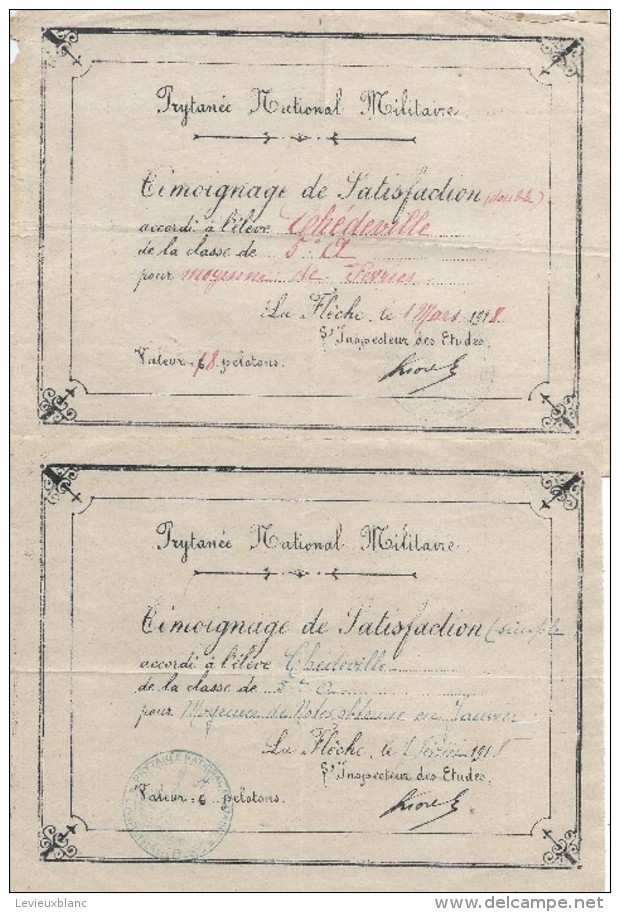 Prytanée National Militaire
Témoignage de Satisfaction (double)
accordé à l'élève Chedeville
de la classe de 5e A
pour moyenne de Février
La Flèche, le 1 Mars 1918
L'Inspecteur des Etudes.
Valeur = 6 pelotons.
Prytanée National Militaire
Témoignage de Satisfaction (simple
accordé à l'élève Chedeville
de la classe de 5me
pour Moyenne de Notes obtenue en Janvier
La Flèche, le 1 Février 1918
L'Inspecteur des Etudes.
Valeur = 6 pelotons.
PRYTANÉE NATIONAL
Levieuxblanc
delcampe.net